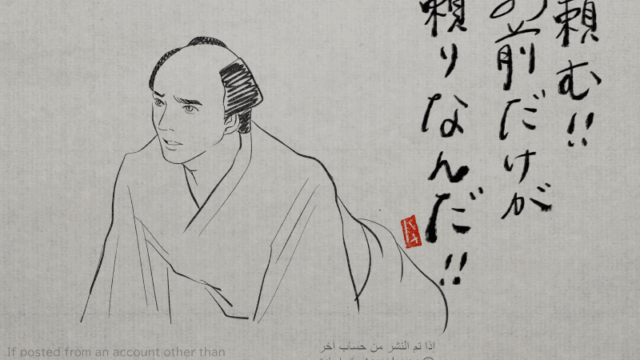 頼む!!
お前だけが
頼りなんだ!!
If posted from an account other than
اذا تم النشر من حساب آخر